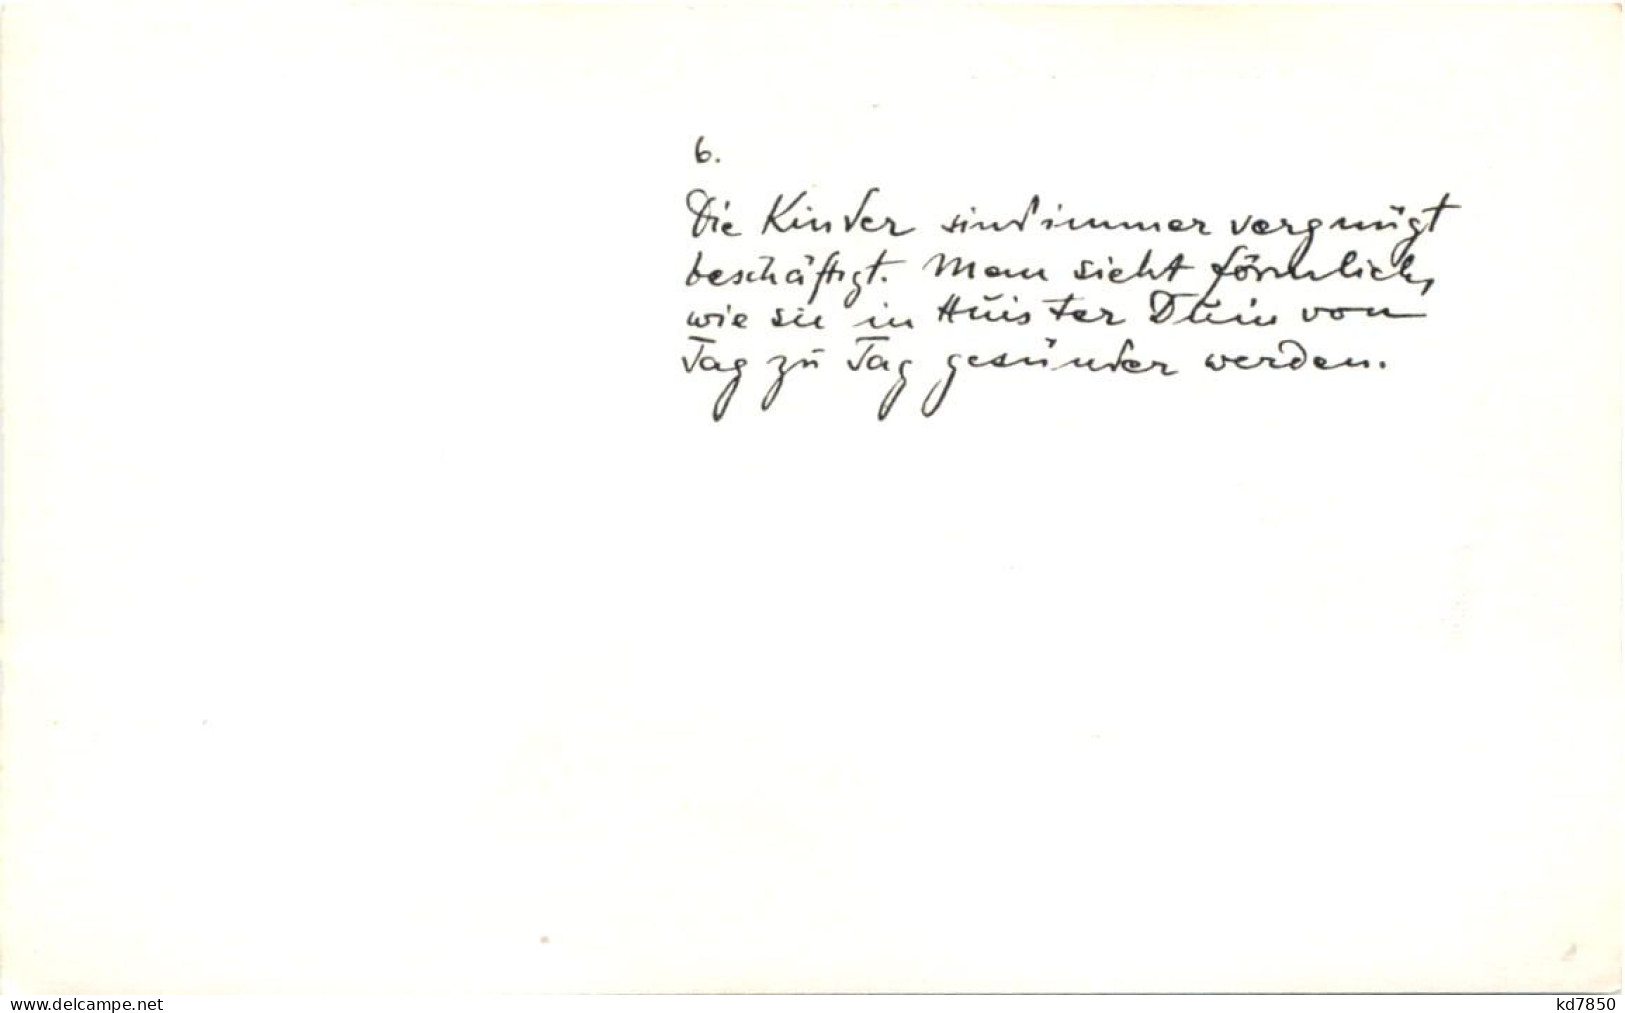 6.
Die Kinder sind immer vergnügt
beschäftigt. Man sieht förmlich,
wie sie in Huis ter Duin von
Tag zu Tag gesünder werden.
www.delcampe.net
kd7850